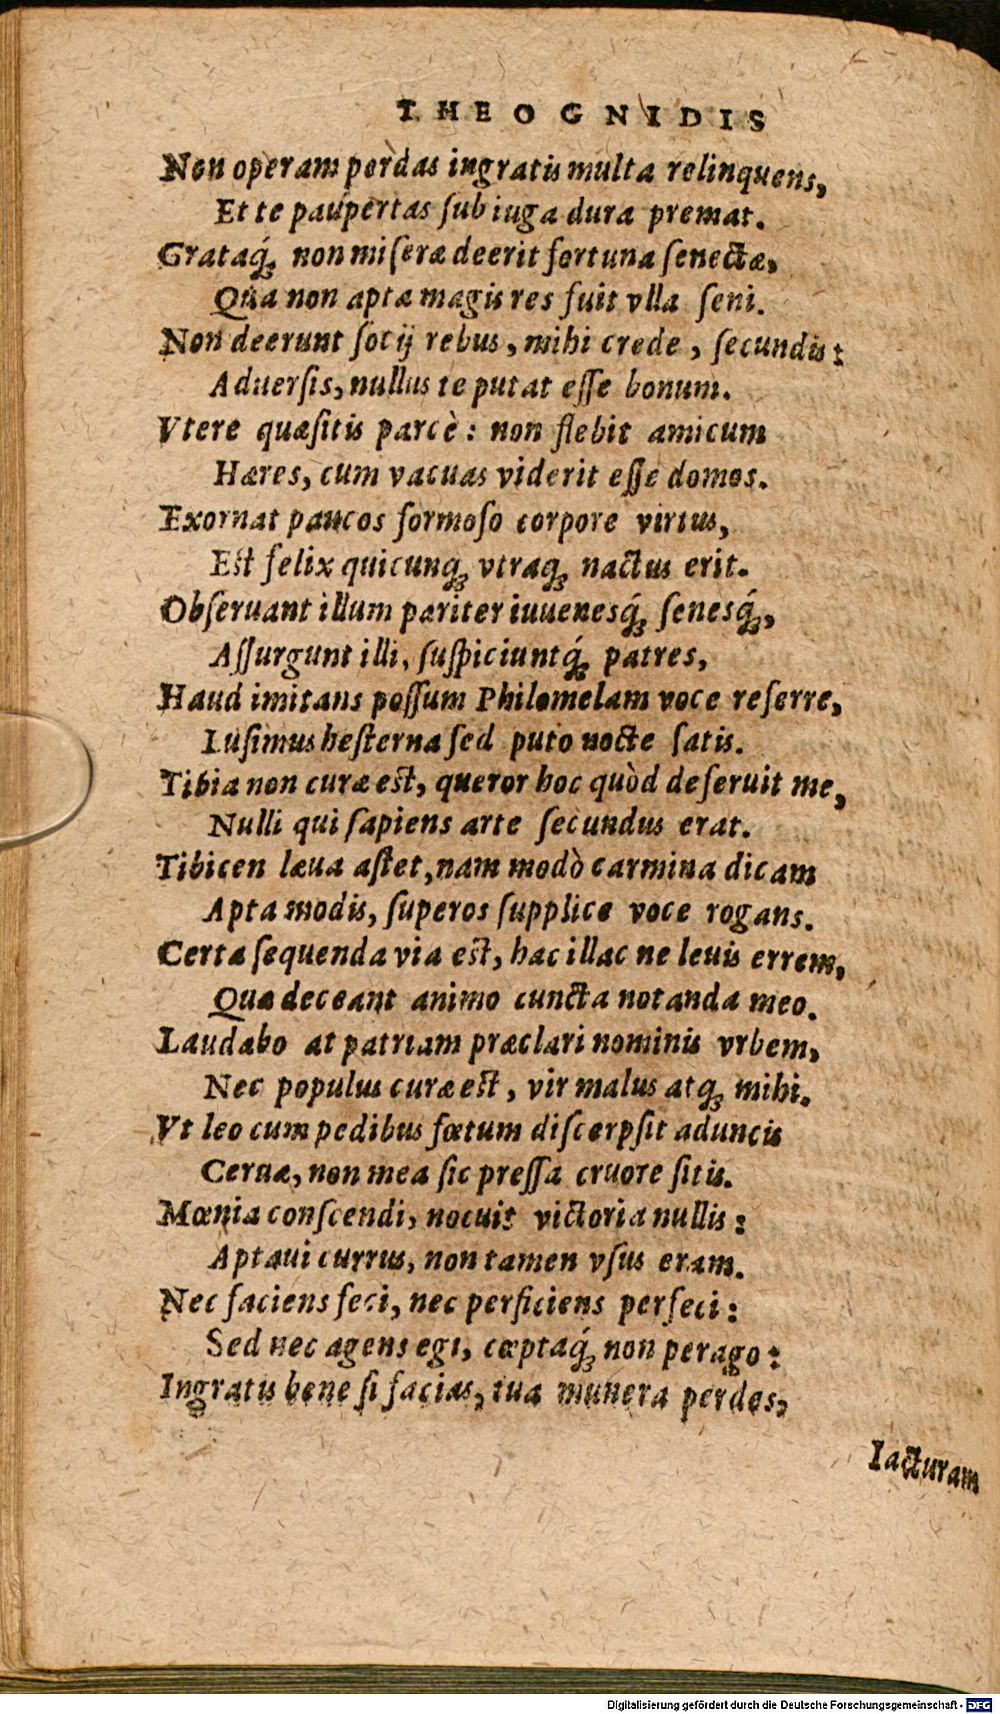 THEOGNIDIS
Non operam perdas ingratis multa relinquens,
Et te paupertas ſub iuga dura premat.
Grataq́; non miſeræ deerit fortuna ſenectæ,
Qua non apta magis res fuit vlla ſeni.
Non deerunt ſocij rebus, mihi crede, ſecundis:
Aduerſis, nullus te putat eſſe bonum.
Vtere quæſitis parcè: non flebit amicum
Hæres, cum vacuas viderit eſſe domos.
Exornat paucos formoſo corpore virtus,
Eſt felix quicunq; vtraq; nactus erit.
Obſeruant illum pariter iuuenesq́; ſenesq́;,
Aſſurgunt illi, ſuſpiciuntq́; patres,
Haud imitans poſſum Philomelam voce referre,
Luſimus heſterna ſed puto nocte ſatis.
Tibia non curæ eſt, queror hoc quòd deſeruit me,
Nulli qui ſapiens arte ſecundus erat.
Tibicen læua aſtet, nam modò carmina dicam
Apta modis, ſuperos ſupplice voce rogans.
Certa ſequenda via eſt, hac illac ne leuis errem,
Qua deceant animo cuncta notanda meo.
Laudabo at patriam præclari nominis vrbem,
Nec populus curæ eſt, vir malus atq; mihi.
Vt leo cum pedibus fœtum diſcerpſit aduncis
Ceruæ, non mea ſic preſſa cruore ſitis.
Mœnia conſcendi, nocuit victoria nullis:
Aptaui currus, non tamen vſus eram.
Nec faciens feci, nec perficiens perfeci:
Sed nec agens egi, cœptaq́; non perago:
Ingratis bene ſi facias, tua munera perdes,
Iacturam
Digitalisierung gefördert durch die Deutsche Forschungsgemeinschaft - DFG